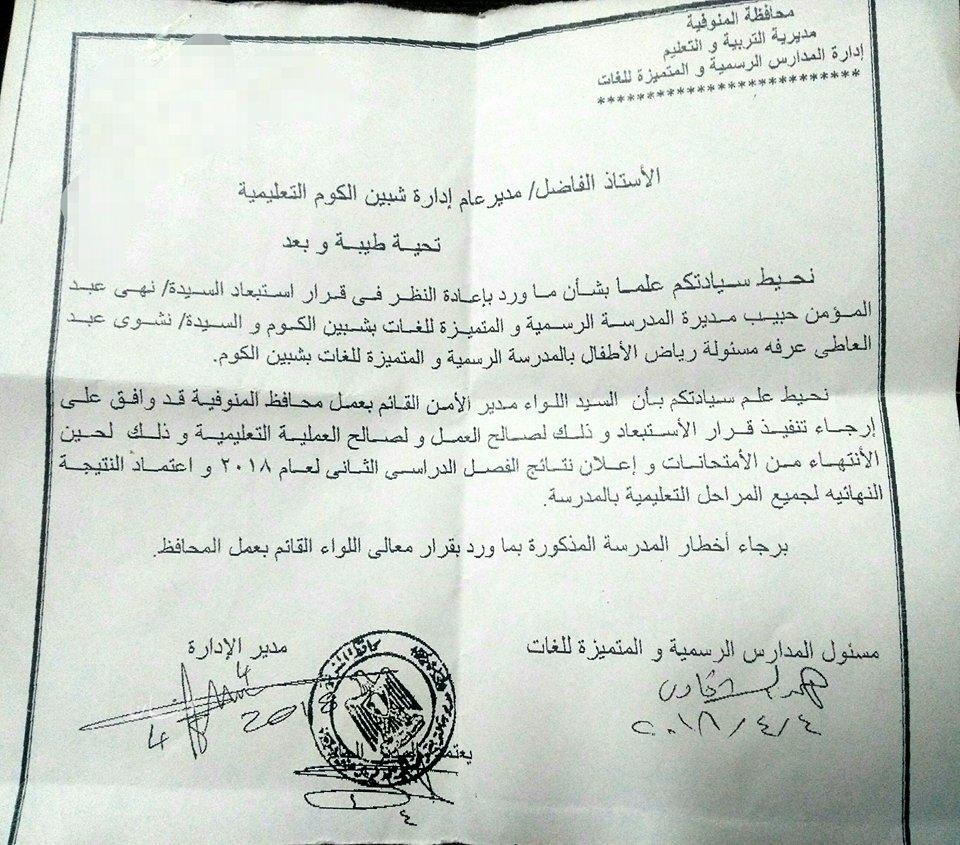 محافظة المنوفية
مديرية التربية و التعليم
إدارة المدارس الرسمية و المتميزة للغات
**************************
الأستاذ الفاضل/ مدير عام إدارة شبين الكوم التعليمية
تحية طيبة و بعد
نحيط سيادتكم علما بشأن ما ورد بإعادة النظر فى قرار استبعاد السيدة/ نهى عبد
المؤمن حبيب مديرة المدرسة الرسمية و المتميزة للغات بشبين الكوم و السيدة/ نشوى عبد
العاطى عرفه مسئولة رياض الأطفال بالمدرسة الرسمية و المتميزة للغات بشبين الكوم.
نحيط علم سيادتكم بأن السيد اللواء مدير الأمن القائم بعمل محافظ المنوفية قد وافق على
إرجاء تنفيذ قرار الأستبعاد و ذلك لصالح العمل و لصالح العملية التعليمية و ذلك لحين
الأنتهاء من الأمتحانات و إعلان نتائج الفصل الدراسي الثانى لعام ٢٠١٨ و اعتماد النتيجة
النهائيه لجميع المراحل التعليمية بالمدرسة.
برجاء أخطار المدرسة المذكورة بما ورد بقرار معالى اللواء القائم بعمل المحافظ.
مسئول المدارس الرسمية و المتميزة للغات
٢٠١٨/٤/٤
مدير الإدارة
4
4 2018
يعتمد